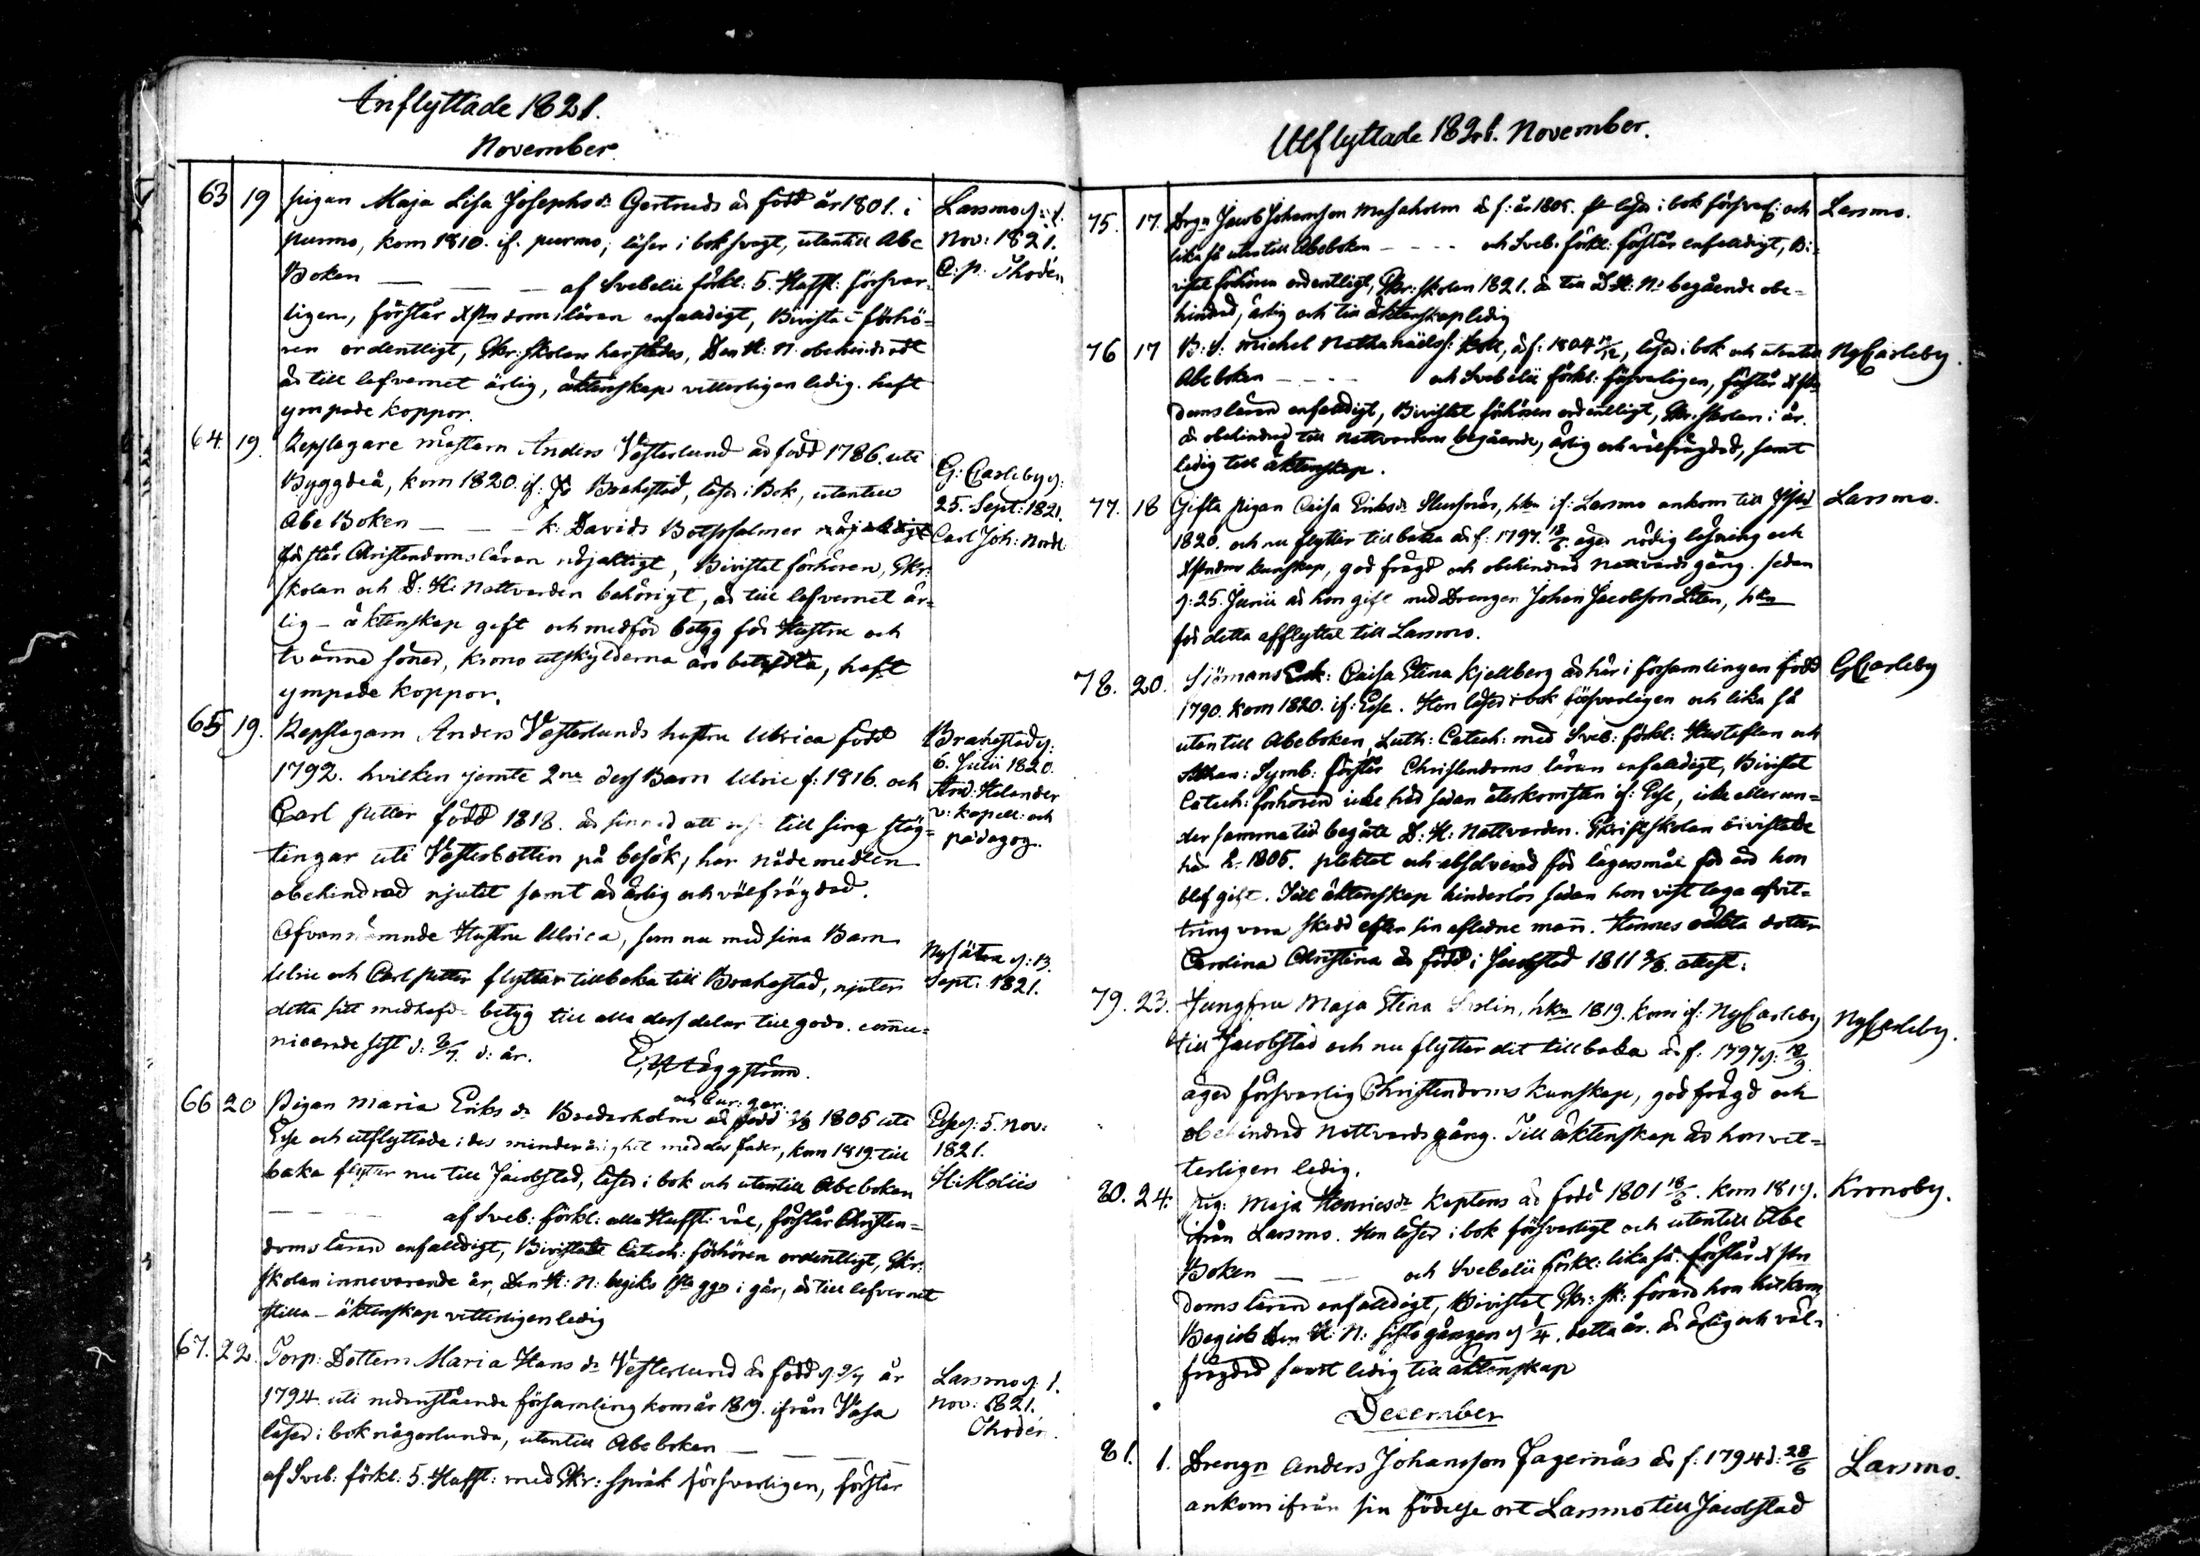 Inflyttade 1821.
November.
63 19 pigan Maja Lisa Josephs dr Gertruds är född år 1801. i
purmo, kom 1810. if. purmo, läser i bok svagt, utantill Abc
Boken — — — af Svebelii förkl: 5. Hufst: försvar-
ligen, förstår Xstndomsläran enfalldigt, Bivista förhö-
ren ordentligt, Skr: skolan harstädes, Den H: N: obehindradt
är till lefvernet ärlig, äktenskaps vitterligen ledig. haft
ympade koppor.
Larsmo d: 1.
Nov: 1821.
C: p: Thodén
64. 19. Repslagare mästaren Anders Vesterlund är född 1786. uti
Byggdeå, kom 1820. if: Brahestad, läser i Bok, utantill
Abc Boken — — — k: Davids Botpsalmer
förstår Christendomsläran nöjaktigt, Bivistat förhören, Skr:
skolan och D: H: Nattvarden behörigt, är till lefvernet är-
lig — äktenskap gift och medför betyg för Hustru och
tvänne söner, krono utskylderna äro betalda, haft
ympade koppor.
G: Carleby d:
25. Sept: 1821.
Carl Joh: Nordl:
65. 19. Repslagarn Anders Vesterlunds hustru Ulrica född
1792. hvilken jemte 2ne dess Barn Ulric f: 1816. och
Carl petter född 1818. är sinnad att till sina släg-
tingar uti Vesterbotten på besök, har nådemedlen
obehindrad njutit samt är ärlig och välfrägdad.
Ofvannämnde Hustru Ulrica, som nu med sina Barn
Ulric och Carl petter flyttar tillbaka till Brahestad, njuter
detta sitt medhafde betyg till alla dess delar till godo. commu-
nicerade sist d: 8/7 d: år.
Häggström.
Brahestad d:
6. Julii 1820.
And: Helander
v: kapell: och
pädagog.
Nysätra d: 13.
Sept: 1821.
66 20 Pigan Maria Eriks dr Brederholm är född 1805 uti
Esse och utflyttade i des minderårighet med des fader, kom 1819. till
baka flytter nu till Jacobstad, läser i bok och utantill Abcboken
— — — af Sveb: förkl: alla Hufst: väl, förstår Christen-
doms läran enfalldigt, Bivistade Catech: förhören ordentligt, Skr:
skolan innevarande år, Den H: N: begicks 1sta ggn i går, är till lefvernet
stilla — äktenskap vitterligen ledig
Esse d: 5. Nov:
1821.
67. 22. Torp: Dottern Maria Hans dr Vesterlund är född d: år
1794. uti nedanstående församling kom år 1819. ifrån Vasa
läser i bok någorlunda, utantill Abcboken — — —
af Sveb: förkl: 5. Hufst: med Skr: språk försvarligen, förstår
Larsmo d: 1.
Nov: 1821.
Thodén.
Utflyttade 1821. November.
75. 17. Drgn Jacob Johansson Mosaholm är f: år 1805. läser i bok försvarl: och
lika så utantill Abcboken — — — och Sveb: förkl: förstår enfalldigt, Bi-
vistat förhören ordentligt, Skr: skolan 1821. är till D. H: N: begående obe-
hindrad, ärlig och till äktenskap ledig
Larsmo.
76 17 B: S: Michel Nathanaelss: är f: 1804, läser i bok och utantill
Abcboken — — — och Svebelii förkl: försvarligen, förstår Xsten
doms läran enfalldigt, Bivistat förhören ordentligt, Skr: skolan i år.
är obehindrad till Nattvardens begående, ärlig och välfrägdad, samt
ledig till äktenskap.
NyCarleby.
77. 18 Gifta pigan Caisa Eriks dr, hkn if: Larsmo ankom till
1820. och nu flytter tillbaka är f: 1797. äger nödig läsning och
kunskap, god frägd och obehindrad Nattvards gång. sedan
d: 25. Junii är hon gift med Drengen Johan Jacobsson Liten, hkn
för detta afflyttat till Larsmo.
Larsmo.
78. 20. Sjömans Enk: Caisa Stina Kjellberg är här i församlingen född
1790. kom 1820. if: Esse. Hon läser i bok försvarligen och lika så
utantill Abcboken, Luth: Catech: med Sveb: förkl: Hustaflan och
Athan: Symb: förstår Christendoms läran enfalldigt, Bivistat
Catech: förhören icke här sedan återkomsten if: Esse, icke eller un-
der samma tid begått D: H: Nattvarden. Skriftskolan bivistade
här år 1806. pliktat och absolverad för lägersmål för än hon
blef gift. Till äktenskap hinderlös sedan hon vist laga afvit-
tring vara skedd efter sin aflidne man. Hennes äkta dotter
Carolina Christina är född i Jacobstad 1811 attest:
GCarleby
79. 23. Jungfru Maja Stina, hkn 1819. kom if: NyCarleby
till Jacobstad och nu flytter dit tillbaka är f: 1797 d:
äger försvarlig Christendoms kunskap, god frägd och
obehindrad Nattvards gång. Till äktenskap är hon vit-
terligen ledig.
NyCarleby.
80. 24. Pig: Maja Henrics dr Keptens är född 1801. kom 1819.
ifrån Larsmo. Hon läser i bok försvarligt och utantill Abc
Boken — — — och Svebelii förkl: lika så. förstår Xstn
doms läran enfalldigt, Bivistat Skr: sk: förrän hon hitkom,
Begick Den H: N: sista gången d: detta år. är ärlig och väl-
frägdad samt ledig till äktenskap
Kronoby.
December
81. 1. Drengn Anders Johansson Fagernäs är f: 1794 d: 28/6
ankom ifrån sin födelse ort Larsmo till Jacobstad
Larsmo.